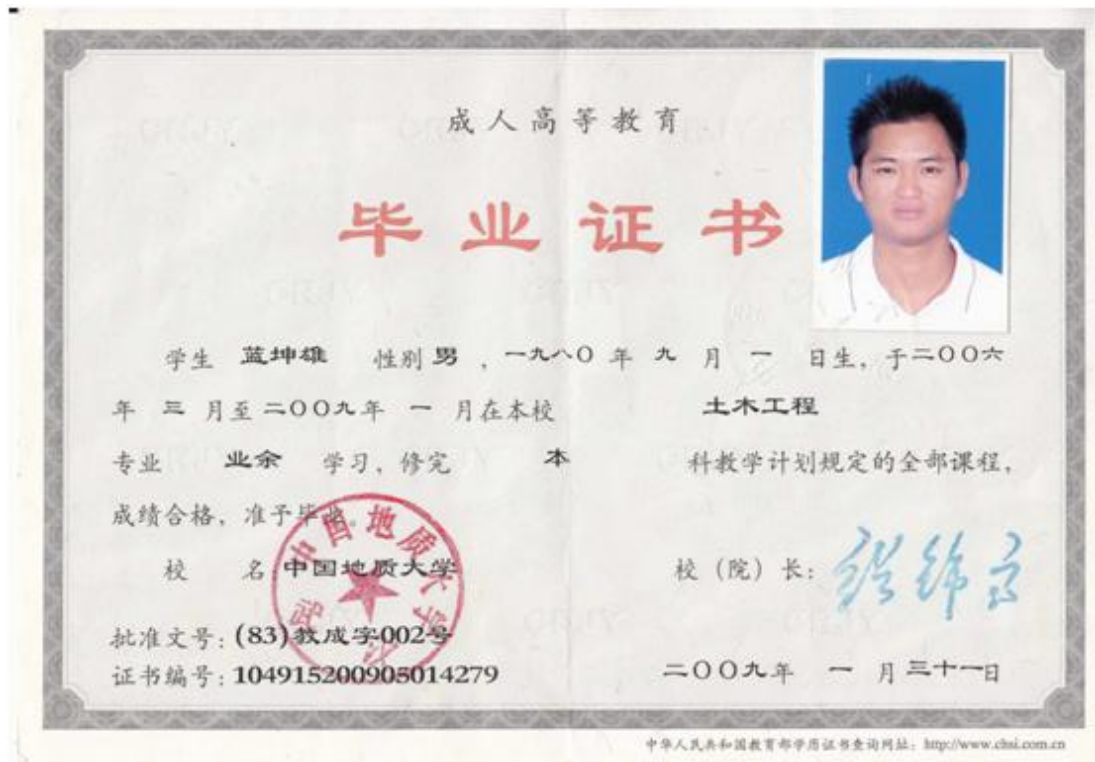 成人高等教育
毕业证书
学生 蓝坤雄 性别 男 ，一九八〇 年 九 月 一 日生，于二〇〇六
年 三 月至 二〇〇九年 一 月在本校 土木工程
专业 业余 学习，修完 本 科教学计划规定的全部课程，
成绩合格，准予毕业。
校 名 中国地质大学
校（院）长：
批准文号：(83)教成字002号
证书编号：104915200905014279
二〇〇九年 一 月 三十一日
中华人民共和国教育部学历证书查询网址：http://www.chsi.com.cn